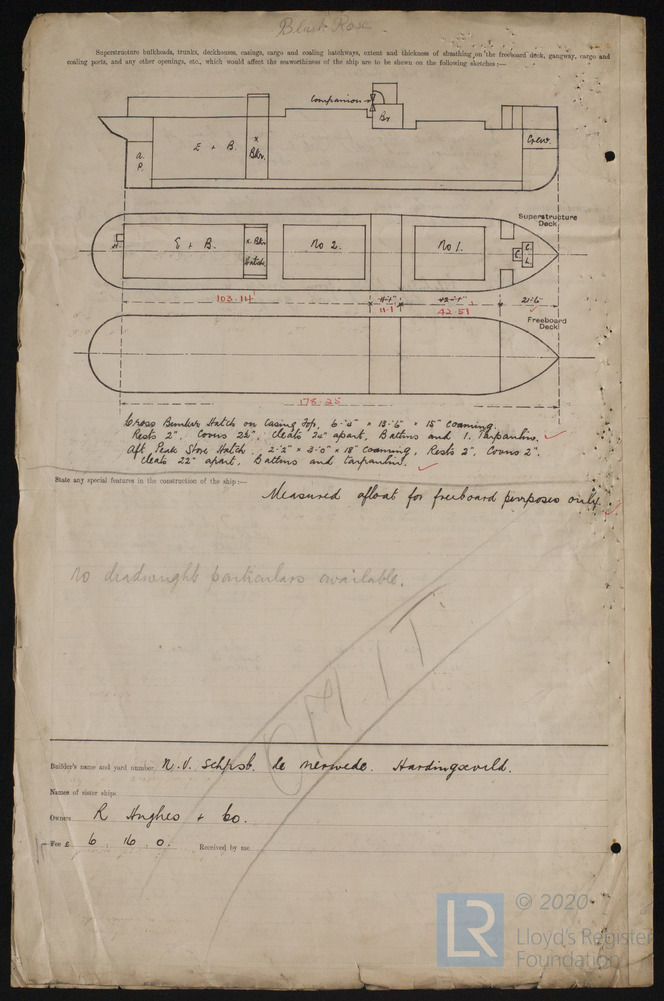 Blush Rose
Superstructure bulkheads, trunks, deckhouses, casings, cargo and coaling hatchways, extent and thickness of sheathing on the freeboard deck, gangway, cargo and
coaling ports, and any other openings, etc., which would affect the seaworthiness of the ship are to be shewn on the following sketches:—
Companion
Br
A.
P.
E + B.
x
Bkr.
Crew.
Superstructure
Deck.
H
E + B.
x Bkr
hatch.
No 2.
No 1.
C.
C.
L.
103.14
11'-1"
42'-1"
21'-6"
11.1
42.51
Freeboard
Deck
178.25
Cross Bunker Hatch on Casing Top, × 18'-6" × 15" coaming.
Rests 2", Covers 2½", Cleats 24" apart, Battens and 1. Tarpaulin.
Aft Peak Store Hatch, 2'-2" × 3'-0" × 18" coaming, Rests 2", Covers 2",
Cleats 22" apart, Battens and Tarpaulin.
State any special features in the construction of the ship:—
Measured afloat for freeboard purposes only.
No deadweight particulars available.
OMIT
Builder's name and yard number N.V. Schpsb. de Merwede. Hardingxveld.
Names of sister ships
Owners R Hughes + Co.
Fee £ 6. 16. 0. Received by me
LR
© 2020
Lloyd's Register
Foundation